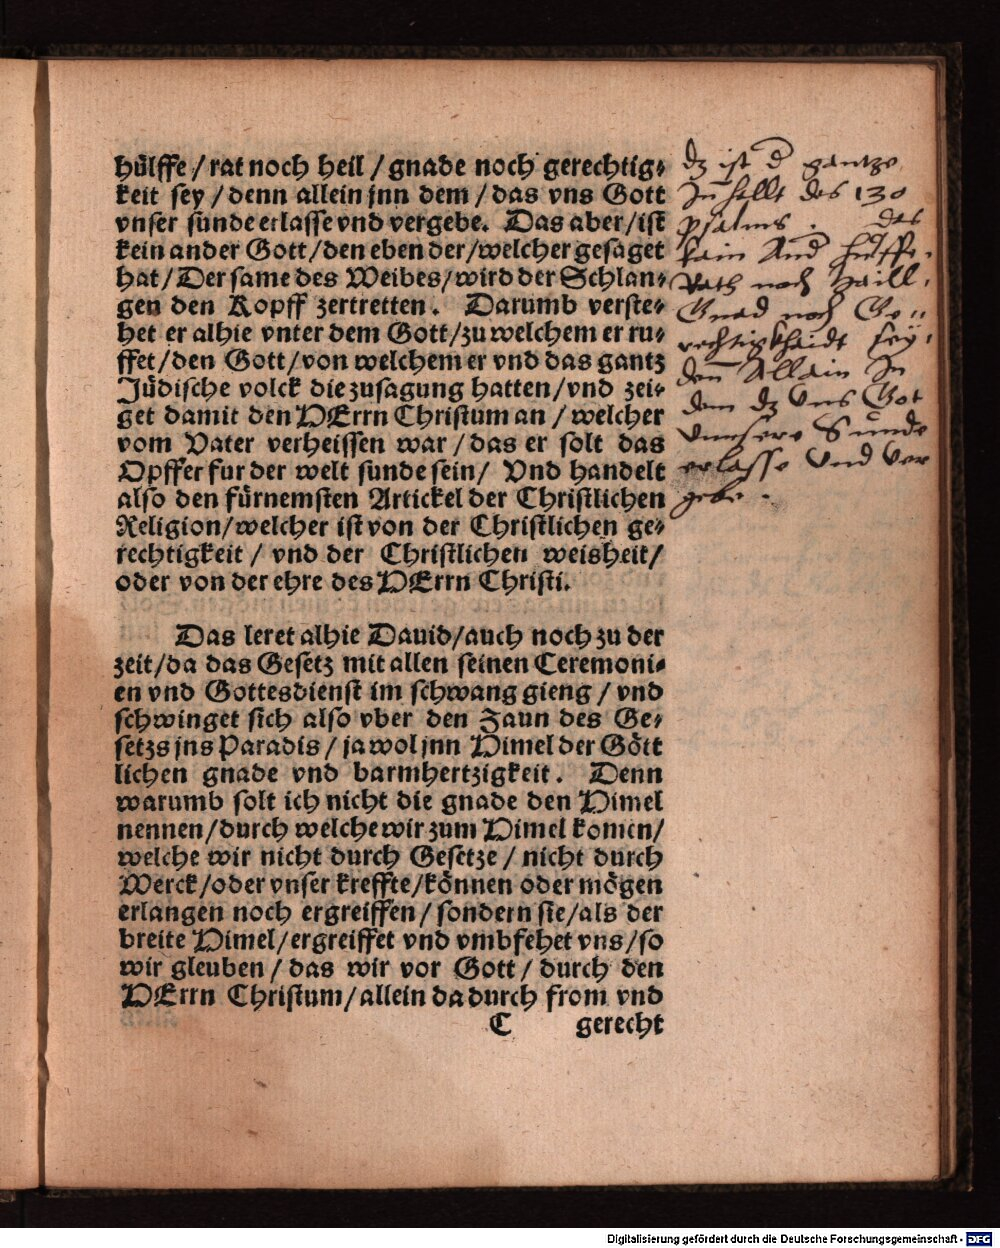 hülffe / rat noch heil / gnade noch gerechtig⸗
keit sey / denn allein jnn dem / das vns Gott
vnser sunde erlasse vnd vergebe. Das aber / ist
kein ander Gott / den eben der / welcher gesaget
hat / Der same des Weibes / wird der Schlan⸗
gen den Kopff zertretten. Darumb verste⸗
het er alhie vnter dem Gott / zu welchem er ru⸗
ffet / den Gott / von welchem er vnd das gantz
Jüdische volck die zusagung hatten / vnd zei⸗
get damit den HErrn Christum an / welcher
vom Vater verheissen war / das er solt das
Opffer fur der welt sunde sein / Vnd handelt
also den fürnemsten Artickel der Christlichen
Religion / welcher ist von der Christlichen ge⸗
rechtigkeit / vnd der Christlichen weisheit /
oder von der ehre des HErrn Christi.
Das leret alhie Dauid / auch noch zu der
zeit / da das Gesetz mit allen seinen Ceremoni⸗
en vnd Gottesdienst im schwang gieng / vnd
schwinget sich also vber den Zaun des Ge⸗
setzs jns Paradis / ja wol jnn Himel der Gött
lichen gnade vnd barmhertzigkeit. Denn
warumb solt ich nicht die gnade den Himel
nennen / durch welche wir zum Himel komen /
welche wir nicht durch Gesetze / nicht durch
Werck / oder vnser kreffte / können oder mögen
erlangen noch ergreiffen / sondern sie / als der
breite Himel / ergreiffet vnd vmbfehet vns / so
wir gleuben / das wir vor Gott / durch den
HErrn Christum / allein dadurch from vnd
C gerecht
dz ist d gantze
Inhallt des 130
psalms. das
kain And hulffe.
Rath noch Haill.
Gnad noch Ge⸗
rechtigkhaidt sey.
den Allain In
dem dz Vns Got
Vnnsere Sunde
erlasse Vnd Ver
gebe.
Digitalisierung gefördert durch die Deutsche Forschungsgemeinschaft - DFG